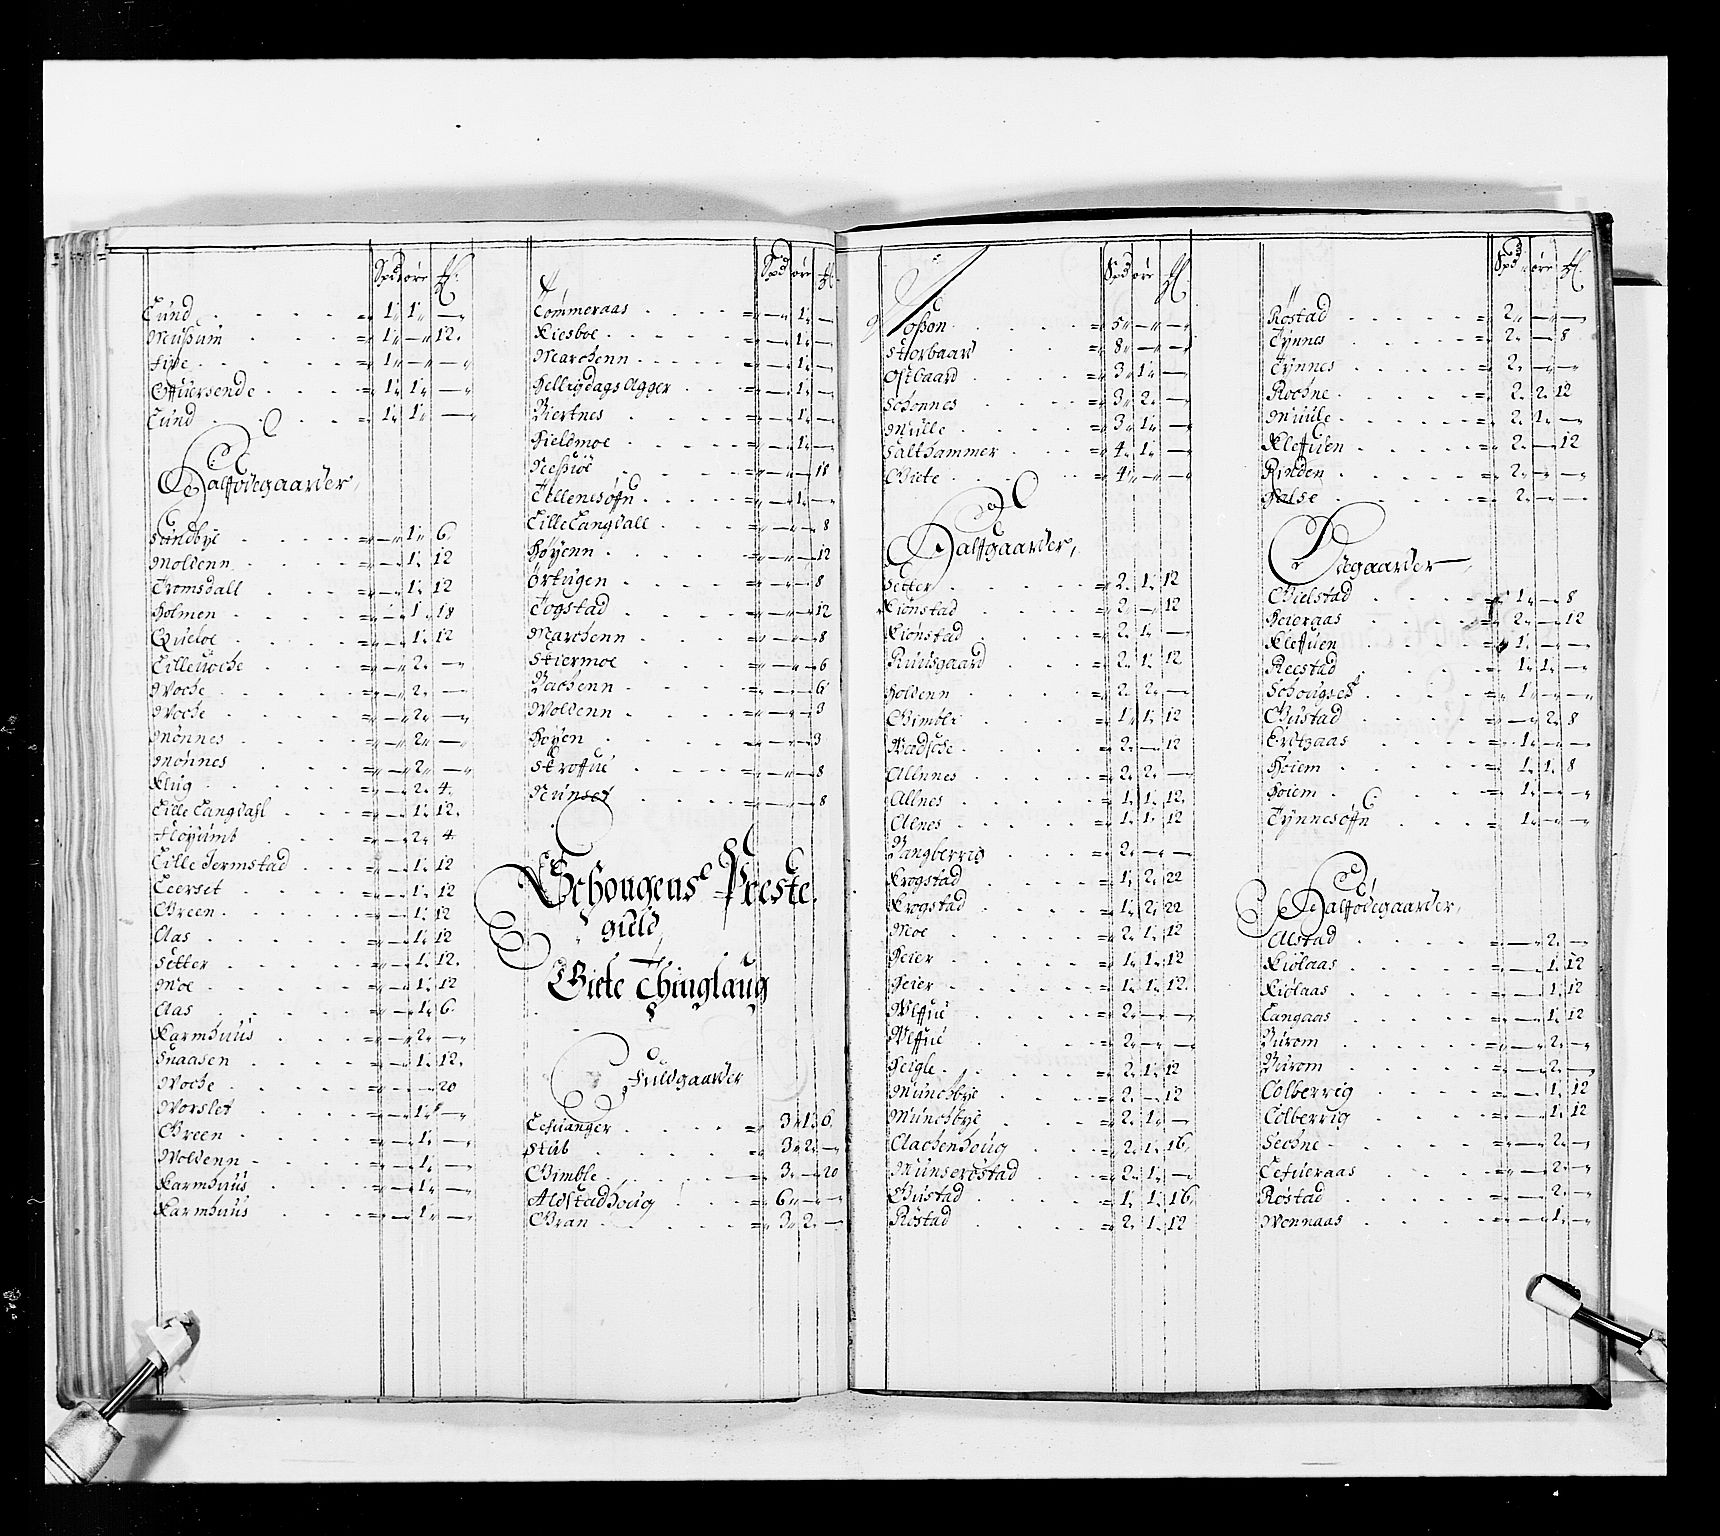 Spd øre
Lund = 1" 1" —"
Mussum = 1" —" 12.
Five = 1" —" —"
Offuersende = 1" 1" —"
Lund = 1" 1" —"
Halfødegaarder,
Sundbye = —" 1" 6.
Moldenn = —" 1. 12
Tromsdall = —" 1. 12
Holmen = —" 1. 18
Queloe = —" 1. 12
Lilleuoche = —" 2. —"
Woche = —" 2. —
Woche = —" 2" —"
Mønnes = —" 2" —"
Mønnes = —" 2" —"
Klug = —" 2. 4.
Lille Langdahl = —" 1. 12.
Fløyumb = —" 2. 4.
Lille Jermstad = —" 1. 12
Leerset = —" 1. 12
Green = —" 1. 12
Aas = —" 1. 12
Setter = —" 1. 12.
Moe = —" 1. 12
Aas = —" 1. 6.
Karmhuus = —" 2. —"
Snaasen = —" 1. 12.
Woche = —" — 20
Worslet = —" 1. —"
Green = —" 1. —"
Woldenn = —" 1. —"
Karmhuus = —" 1. —"
Karmhuus = —" 1. —"
Spd øre
Tømmeraas = —" 1. —
Kiesboe = —" 1. —
Marchenn = —" 1. —
Helligdags Agger = —" 1. —
Biertnes = —" 1. —
Hieldmoe = —" 1. —
Nessiøe = —" —" 18
Tillenesøffn = —" 1. —
Lille Langdall = —" —" 8
Høyenn = —" —" 12
Ørtugen = —" —" 8
Jogstad = —" —" 12
Marchenn = —" —" 8
Stiermoe = —" —" 6
Bachenn = —" —" 6
Woldenn = —" —" 3
Høyen = —" —" 3
Stroffue = —" —" 8
Nunset = —" —" 8
Schougens Preste
gield
Giete Thinglaug
Fuldgaarder
Lefuanger = 3" 1. 6.
Stub = 3" 2. —
Gimble = 3" — 20
Aldstadhoug = 6" —" —
Gran = 3" 2. —
Spd øre
= 5" —" —"
Storbaard = 8" —" —"
Ostbaard = 3" 1. —
Schonnes = 3" 2. —
Mulle = 3" 1. —
Salthammer = 4. 1. —
Giete = 4" —" —"
Halfgaarder,
Setter = 2. 1. 12
Kiønstad = 2. —" 12
Kiønstad = 2. 1. —
Ruusgaard = 2. 1. 12
Holdenn = 2. 2. —
Gimble = 1. 1. 12
= 2. —" 12
Allnnes = 2. 2. —
Allnes = 1. 1. 12.
Alnes = 1. 1. 12
Bangberrig = 2. — —
Krogstad = 1. 2. 22
Krogstad = 1. 2. 22
Moe = 2. 1. 12
Heier = 1. 1. 12
Heier = 1. 1. 12.
Wlffue = 2. — —
Wlffue = 2. — —
Heigle = 2. 1. 12
Munchbye = 2. —" 12
Munchbye = 2. 1. —
Aachenhoug = 2. 1. 16.
Munserøstad = 2. 1. —
Gustad = 1. 1. 16.
Røstad = 2. 1. 12
Spd øre
Røstad = 2" —" —
Tynnes = 2. —" 8
Tynnes = 2. —" —
Rochne = 2. 2. 12
Muule = 2. 1. —
Kleffuen = 2. —" 12
Rinden = 2. —" —
Halse = 2. —" —
Ødegaarder,
Gielstad = 1. —" 8
Heieraas = 2. —" 12
Kleffuen = 1. —" —
Reestad = 1. 1. —
= 1. —" —
Gustad = —" 2. 8
= 1. —" —
Høiem = 1. 1. 8
Høiem = 1. —" —
Tynnesøffn = 1. —" —
Halfødegaarder,
Alstad = —" 2. —
Kiølaas = —" 1. 12
Kiølaas = —" 1. 12
Langaas = —" 1. 12
Burom = —" 2. —
Burom = —" 2. —
Colberrig = —" 1. 12
Colberrig = —" 1. 12
Sechne = —" 2. —
Lefueraas = —" 2. —
Røstad = —" 2. —
Wennaas = —" 1. —